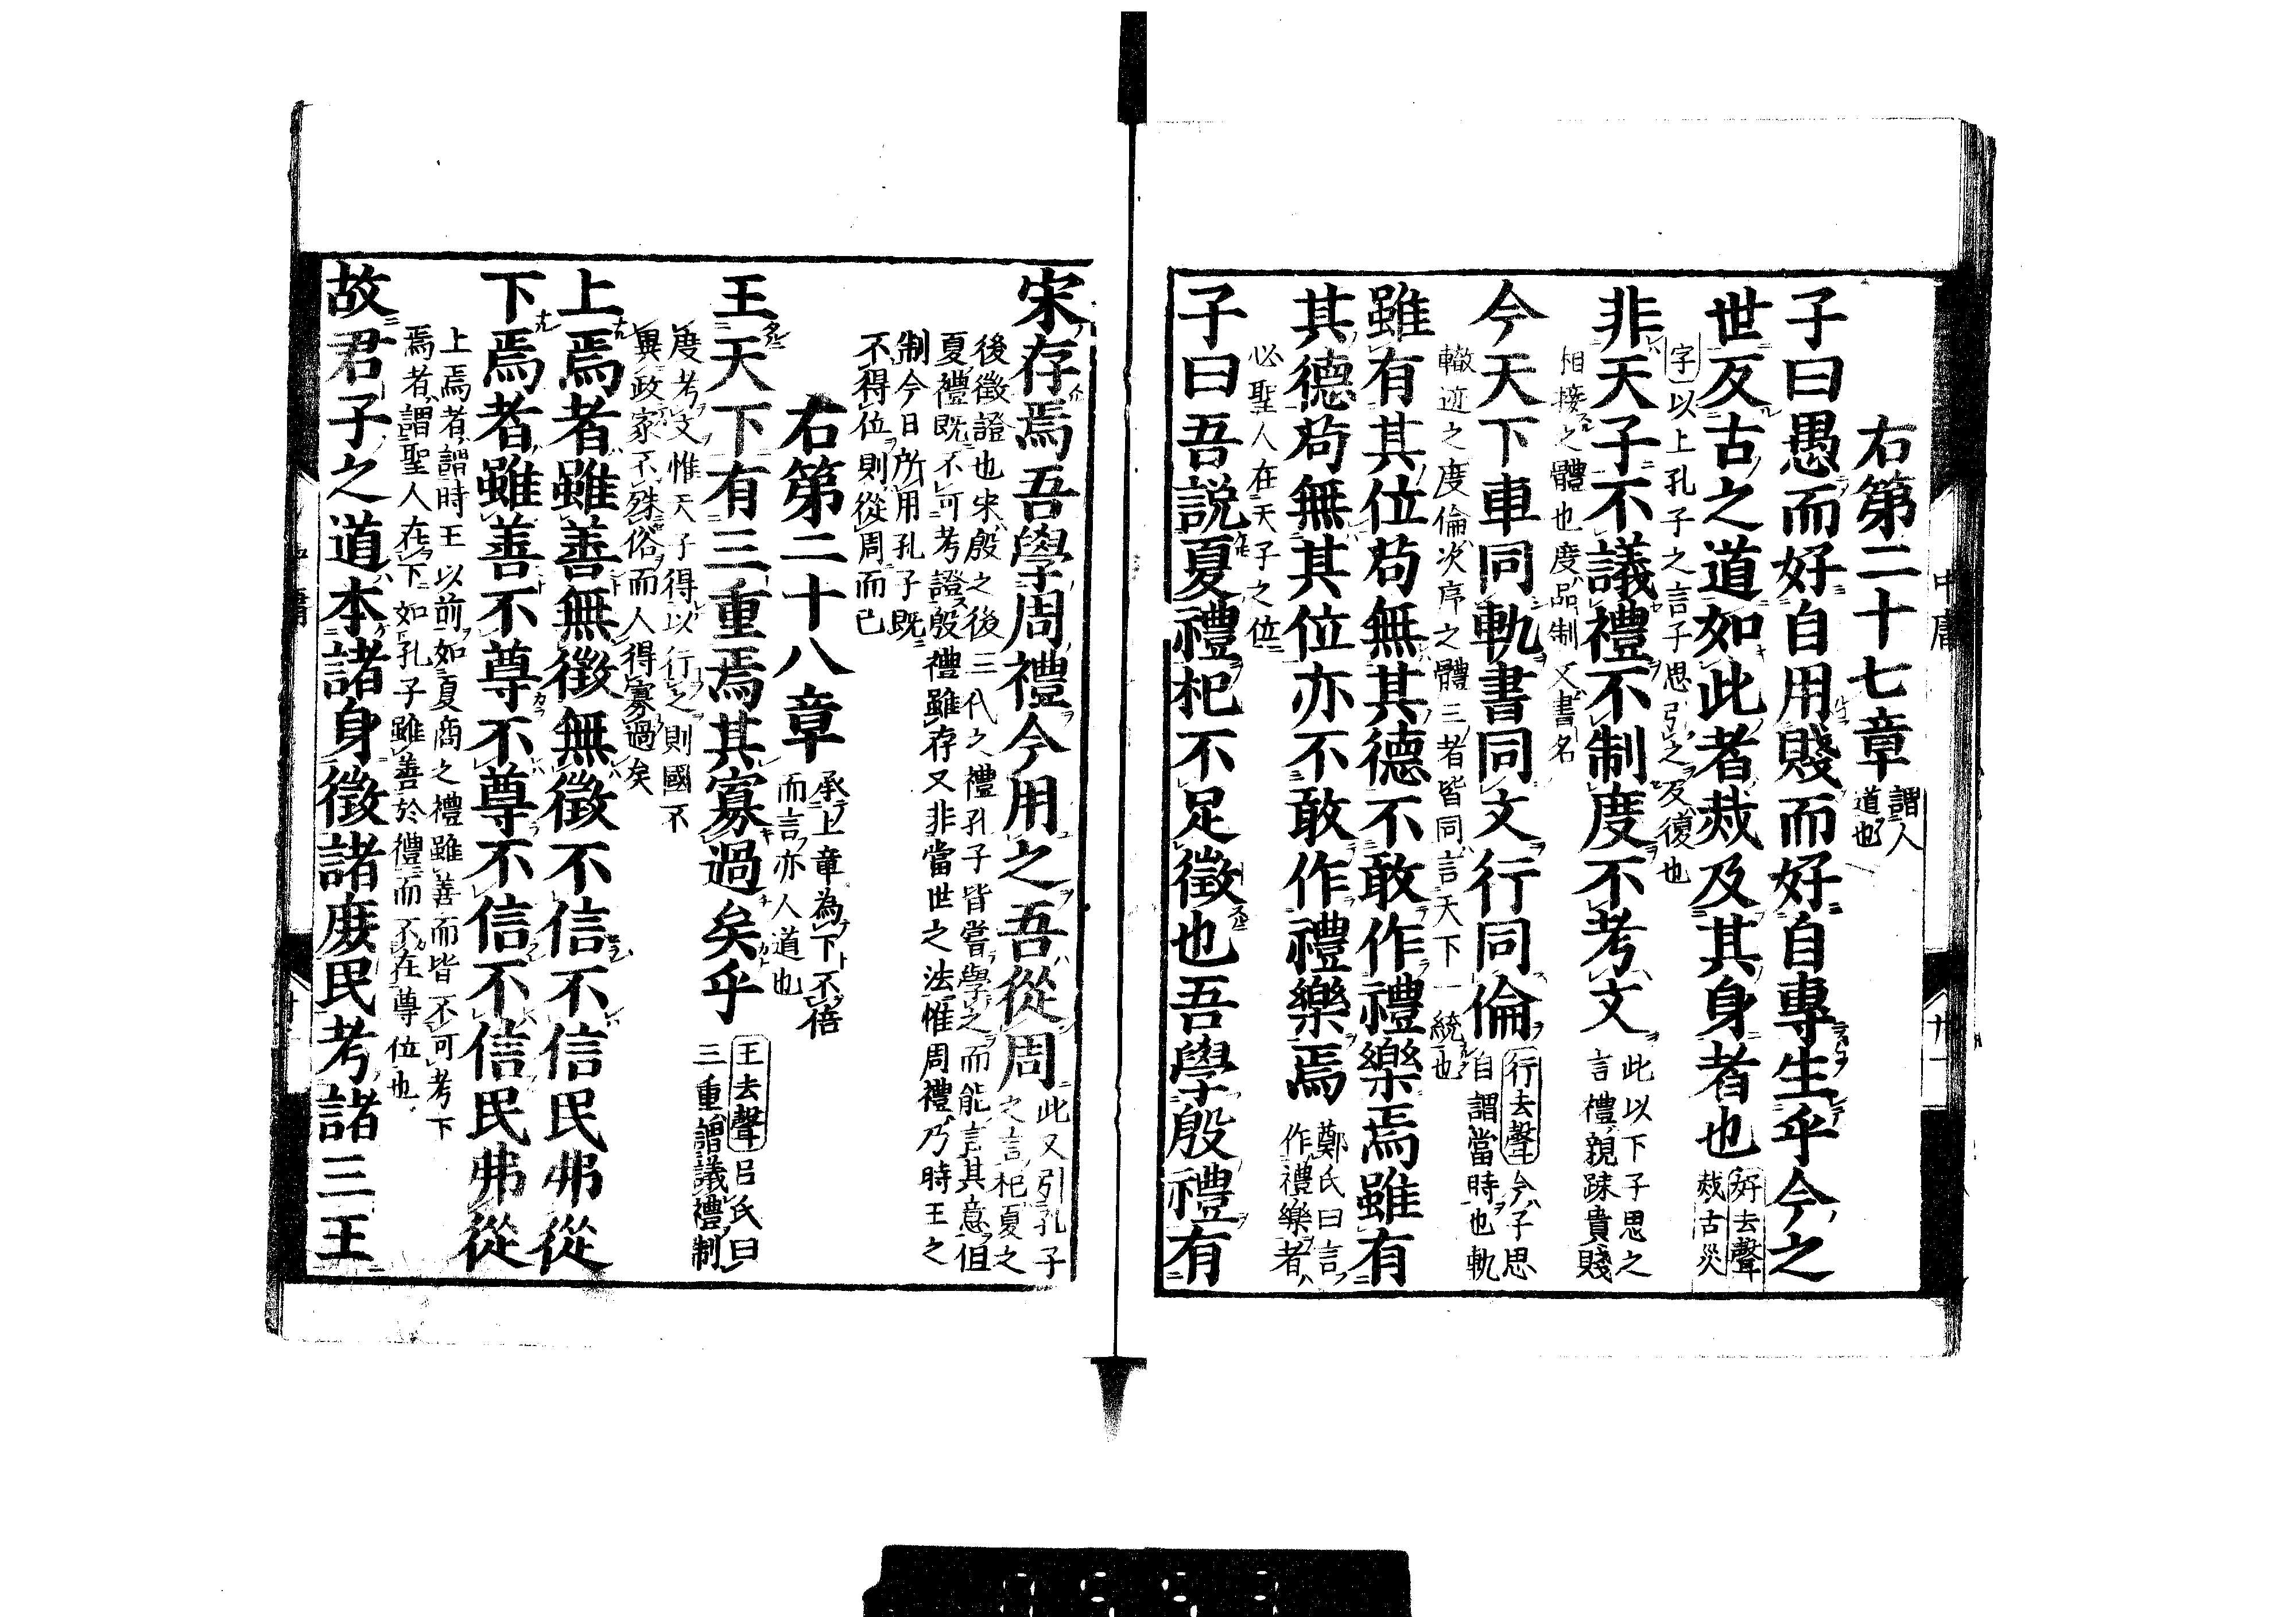 右第二十七章 謂人
道也
子曰愚而好自用賤而好自專生乎今之
世反古之道如此者烖及其身者也 好去聲
烖古災
字以上孔子之言子思引之反復也
非天子不議禮不制度不考文 此以下子思之
言禮親踈貴賤
相接之體也度品制文書名
今天下車同軌書同文行同倫 行去聲今子思
自謂當時也軌
轍迹之度倫次序之體三者皆同言天下一統也
雖有其位苟無其德不敢作禮樂焉雖有
其德苟無其位亦不敢作禮樂焉 鄭氏曰言
作禮樂者
必聖人在天子之位
子曰吾説夏禮杞不足徵也吾學殷禮有
中庸
廿一
宋存焉吾學周禮今用之吾從周 此又引孔子
之言杞夏之
後徵證也宋殷之後三代之禮孔子皆嘗學之而能言其意但
夏禮既不可考證殷禮雖存又非當世之法惟周禮乃時王之
制今日所用孔子既
不得位則從周而已
右第二十八章 承上章為下不倍
而言亦人道也
王天下有三重焉其寡過矣乎 王去聲呂氏曰
三重謂議禮制
度考文惟天子得以行之則國不
異政家不殊俗而人得寡過矣
上焉者雖善無徵無徵不信不信民弗從
下焉者雖善不尊不尊不信不信民弗從
上焉者謂時王以前如夏商之禮雖善而皆不可考下
焉者謂聖人在下如孔子雖善於禮而不在尊位也
故君子之道本諸身徵諸庶民考諸三王